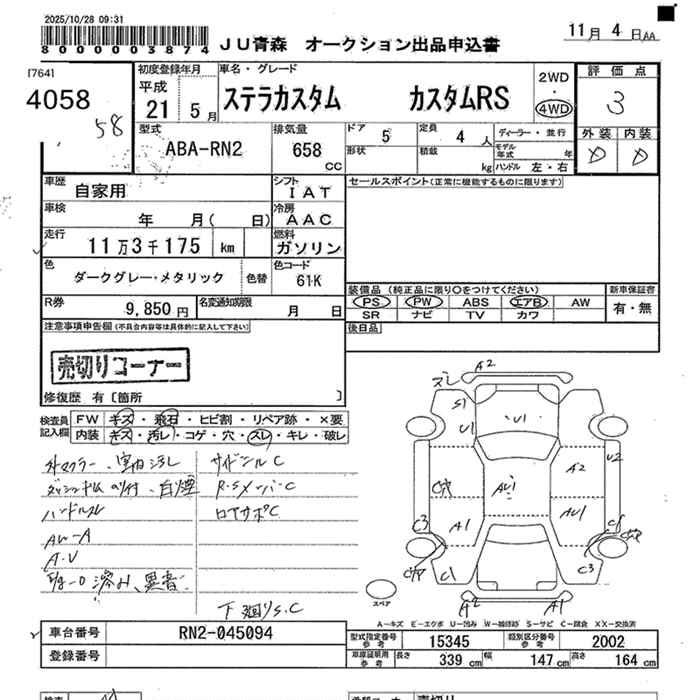 2025/10/28 09:31
8000003874
JU青森 オークション出品申込書
11月 4日 AA
[764]
4058
58
初度登録年月
平成
21 5月
車名・グレード
ステラカスタム カスタムRS
2WD
・
4WD
評価点
3
外装 内装
D D
型式
ABA-RN2
排気量
658
CC
ドア 5
定員 4 人
形状
積載 kg
ディーラー・並行
モデル年式 年
ハンドル 左・右
車歴
自家用
シフト
IAT
セールスポイント(正常に機能するものに限ります)
車検
年 月( 日)
冷房
AAC
走行
11万3千175 km
燃料
ガソリン
色
ダークグレー・メタリック
色替
色コード
61K
装備品 (純正品に限り○をつけてください)
新車保証書
PS PW ABS エアB AW
有・無
SR ナビ TV カワ
R券
9,850円
名変通知期限
月 日
後日品
注意事項申告欄(不具合内容等は具体的に記入して下さい)
売切りコーナー
修復歴 有〔箇所 〕
検査員
記入欄
FW キズ・飛石・ヒビ割・リペア跡・×要
内装 キズ・汚レ・コゲ・穴・スレ・キレ・破レ
サイドシルC
白煙
ハンドルスレ
AW-A
異音
下廻りS.C
A2
スレ
S1
U1
U1
A2
U2
AU1
A1
AU1
C3
C1
C3
A2
A1
スペア
A-キズ E-エクボ U-凹み W-補修跡 S-サビ C-腐食 X,XX-交換済
車台番号
RN2-045094
型式指定番号
参考
15345
類別区分番号
参考
2002
登録番号
車庫証明用
参考
長さ 339 cm
幅 147 cm
高さ 164 cm
検査
売切り